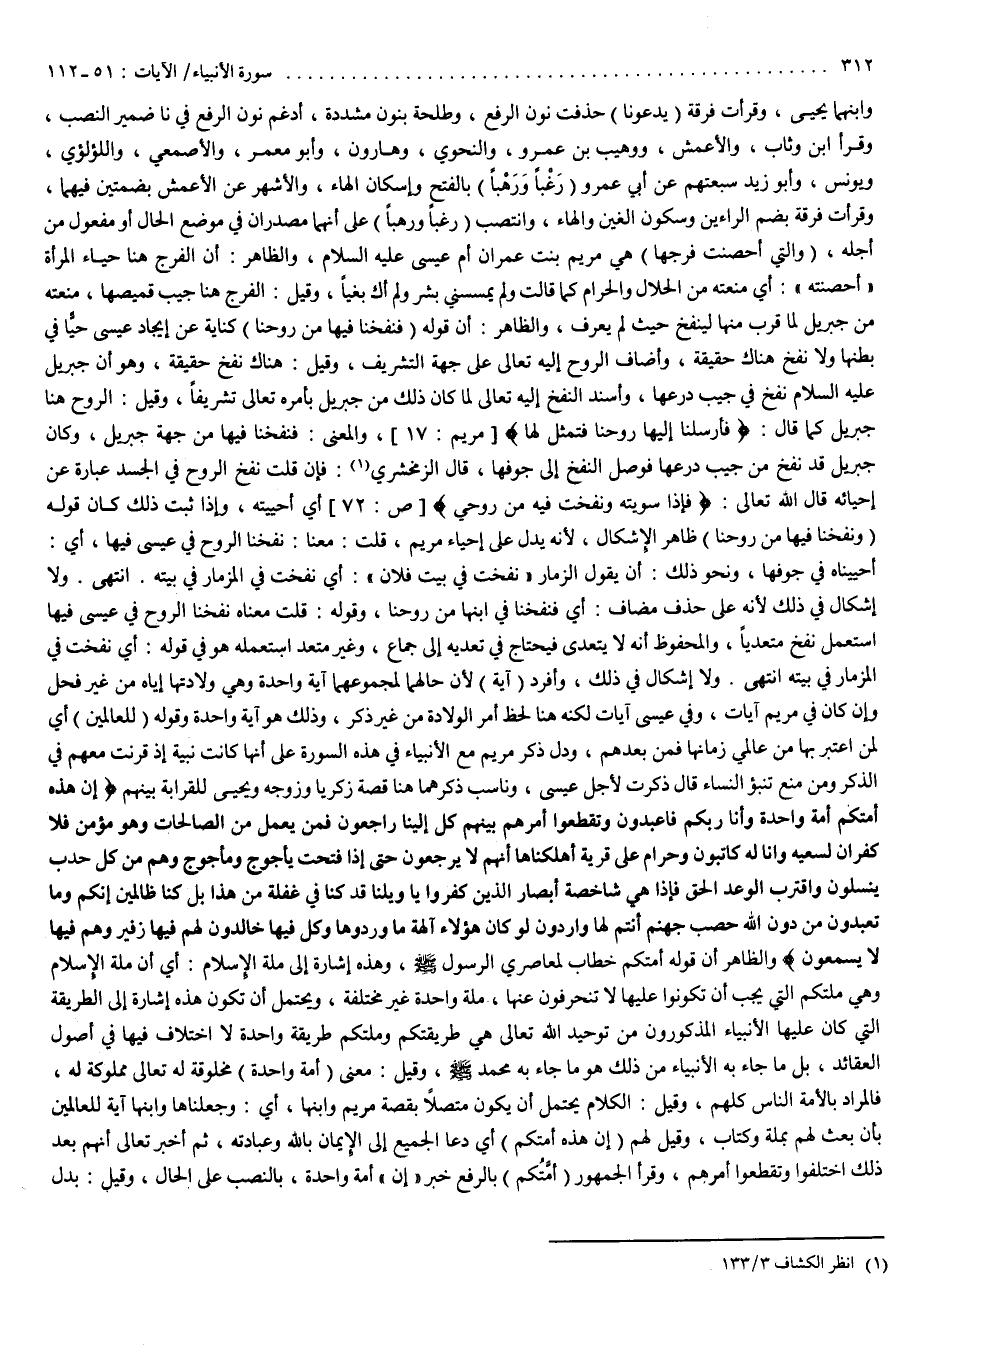 ٣١٢ ........................................................ سورة الأنبياء/ الآيات : ٥١ـ١١٢
وابنهما يحيـى ، وقرأت فرقة ( يدعونا ) حذفت نون الرفع ، وطلحة بنون مشددة ، أدغم نون الرفع في نا ضمير النصب ،
وقـرأ ابن وثاب ، والأعمش ، ووهيب بن عمـرو ، والنحوي ، وهـارون ، وأبو معمـر ، والأصمعي ، واللؤلؤي ،
ويونس ، وأبو زيد سبعتهم عن أبي عمرو ( رَغْباً وَرَهْباً ) بالفتح وإسكان الهاء ، والأشهر عن الأعمش بضمتين فيهما ،
وقرأت فرقة بضم الراءين وسكون الغين والهاء ، وانتصب ( رغباً ورهباً ) على أنهما مصدران في موضع الحال أو مفعول من
أجله ، ( والتي أحصنت فرجها ) هي مريم بنت عمران أم عيسى عليه السلام ، والظاهر : أن الفرج هنا حيـاء المرأة
« أحصنته » : أي منعته من الحلال والحرام كما قالت ولم يمسسني بشر ولم أك بغياً ، وقيل : الفرج هنا جيب قميصها ، منعته
من جبريل لما قرب منها لينفخ حيث لم يعرف ، والظاهر : أن قوله ( فنفخنا فيها من روحنا ) كناية عن إيجاد عيسى حيًّا في
بطنها ولا نفخ هناك حقيقة ، وأضاف الروح إليه تعالى على جهة التشريف ، وقيل : هناك نفخ حقيقة ، وهو أن جبريل
عليه السلام نفخ في جيب درعها ، وأسند النفخ إليه تعالى لما كان ذلك من جبريل بأمره تعالى تشريفاً ، وقيل : الروح هنا
جبريل كما قال : ﴿ فأرسلنا إليها روحنا فتمثل لها ﴾ [ مريم : ١٧ ] ، والمعنى : فنفخنا فيها من جهة جبريل ، وكان
جبريل قد نفخ من جيب درعها فوصل النفخ إلى جوفها ، قال الزمخشري(١) : فإن قلت نفخ الروح في الجسد عبارة عن
إحيائه قال الله تعالى : ﴿ فإذا سويته ونفخت فيه من روحي ﴾ [ ص : ٧٢ ] أي أحييته ، وإذا ثبت ذلك كـان قولـه
( ونفخنا فيها من روحنا ) ظاهر الإشكال ، لأنه يدل على إحياء مريم ، قلت : معنا : نفخنا الروح في عيسى فيها ، أي :
أحييناه في جوفها ، ونحو ذلك : أن يقول الزمار « نفخت في بيت فلان » : أي نفخت في المزمار في بيته . انتهى . ولا
إشكال في ذلك لأنه على حذف مضاف : أي فنفخنا في ابنها من روحنا ، وقوله : قلت معناه نفخنا الروح في عيسى فيها
استعمل نفخ متعدياً ، والمحفوظ أنه لا يتعدى فيحتاج في تعديه إلى جماع ، وغير متعد استعمله هو في قوله : أي نفخت في
المزمار في بيته انتهى . ولا إشكال في ذلك ، وأفرد ( آية ) لأن حالهما لمجموعهما آية واحدة وهي ولادتها إياه من غير فحل
وإن كان في مريم آيات ، وفي عيسى آيات لكنه هنا لحظ أمر الولادة من غير ذكر ، وذلك هو آية واحدة وقوله ( للعالمين ) أي
لمن اعتبر بها من عالمي زمانها فمن بعدهم ، ودل ذكر مريم مع الأنبياء في هذه السورة على أنها كانت نبية إذ قرنت معهم في
الذكر ومن منع تنبؤ النساء قال ذكرت لأجل عيسى ، وناسب ذكرهما هنا قصة زكريا وزوجه ويحيـى للقرابة بينهم ﴿ إن هذه
أمتكم أمة واحدة وأنا ربكم فاعبدون وتقطعوا أمرهم بينهم كل إلينا راجعون فمن يعمل من الصالحات وهو مؤمن فلا
كفران لسعيه وانا له كاتبون وحرام على قرية أهلكناها أنهم لا يرجعون حتى إذا فتحت يأجوج ومأجوج وهم من كل حدب
ينسلون واقترب الوعد الحق فإذا هي شاخصة أبصار الذين كفروا يا ويلنا قد كنا في غفلة من هذا بل كنا ظالمين إنكم وما
تعبدون من دون الله حصب جهنم أنتم لها واردون لو كان هؤلاء آلهة ما وردوها وكل فيها خالدون لهم فيها زفير وهم فيها
لا يسمعون ﴾ والظاهر أن قوله أمتكم خطاب لمعاصري الرسول ﷺ ، وهذه إشارة إلى ملة الإسلام : أي أن ملة الإسلام
وهي ملتكم التي يجب أن تكونوا عليها لا تنحرفون عنها ، ملة واحدة غير مختلفة ، ويحتمل أن تكون هذه إشارة إلى الطريقة
التي كان عليها الأنبياء المذكورون من توحيد الله تعالى هي طريقتكم وملتكم طريقة واحدة لا اختلاف فيها في أصول
العقائد ، بل ما جاء به الأنبياء من ذلك هو ما جاء به محمد ﷺ ، وقيل : معنى ( أمة واحدة ) مخلوقة له تعالى مملوكة له ،
فالمراد بالأمة الناس كلهم ، وقيل : الكلام يحتمل أن يكون متصلاً بقصة مريم وابنها ، أي : وجعلناها وابنها آية للعالمين
بأن بعث لهم بملة وكتاب ، وقيل لهم ( إن هذه أمتكم ) أي دعا الجميع إلى الإيمان بالله وعبادته ، ثم أخبر تعالى أنهم بعد
ذلك اختلفوا وتقطعوا أمرهم ، وقرأ الجمهور ( أمَّتُكم ) بالرفع خبر « إن » أمة واحدة ، بالنصب على الحال ، وقيل : بدل
(١) انظر الكشاف ١٣٣/٣